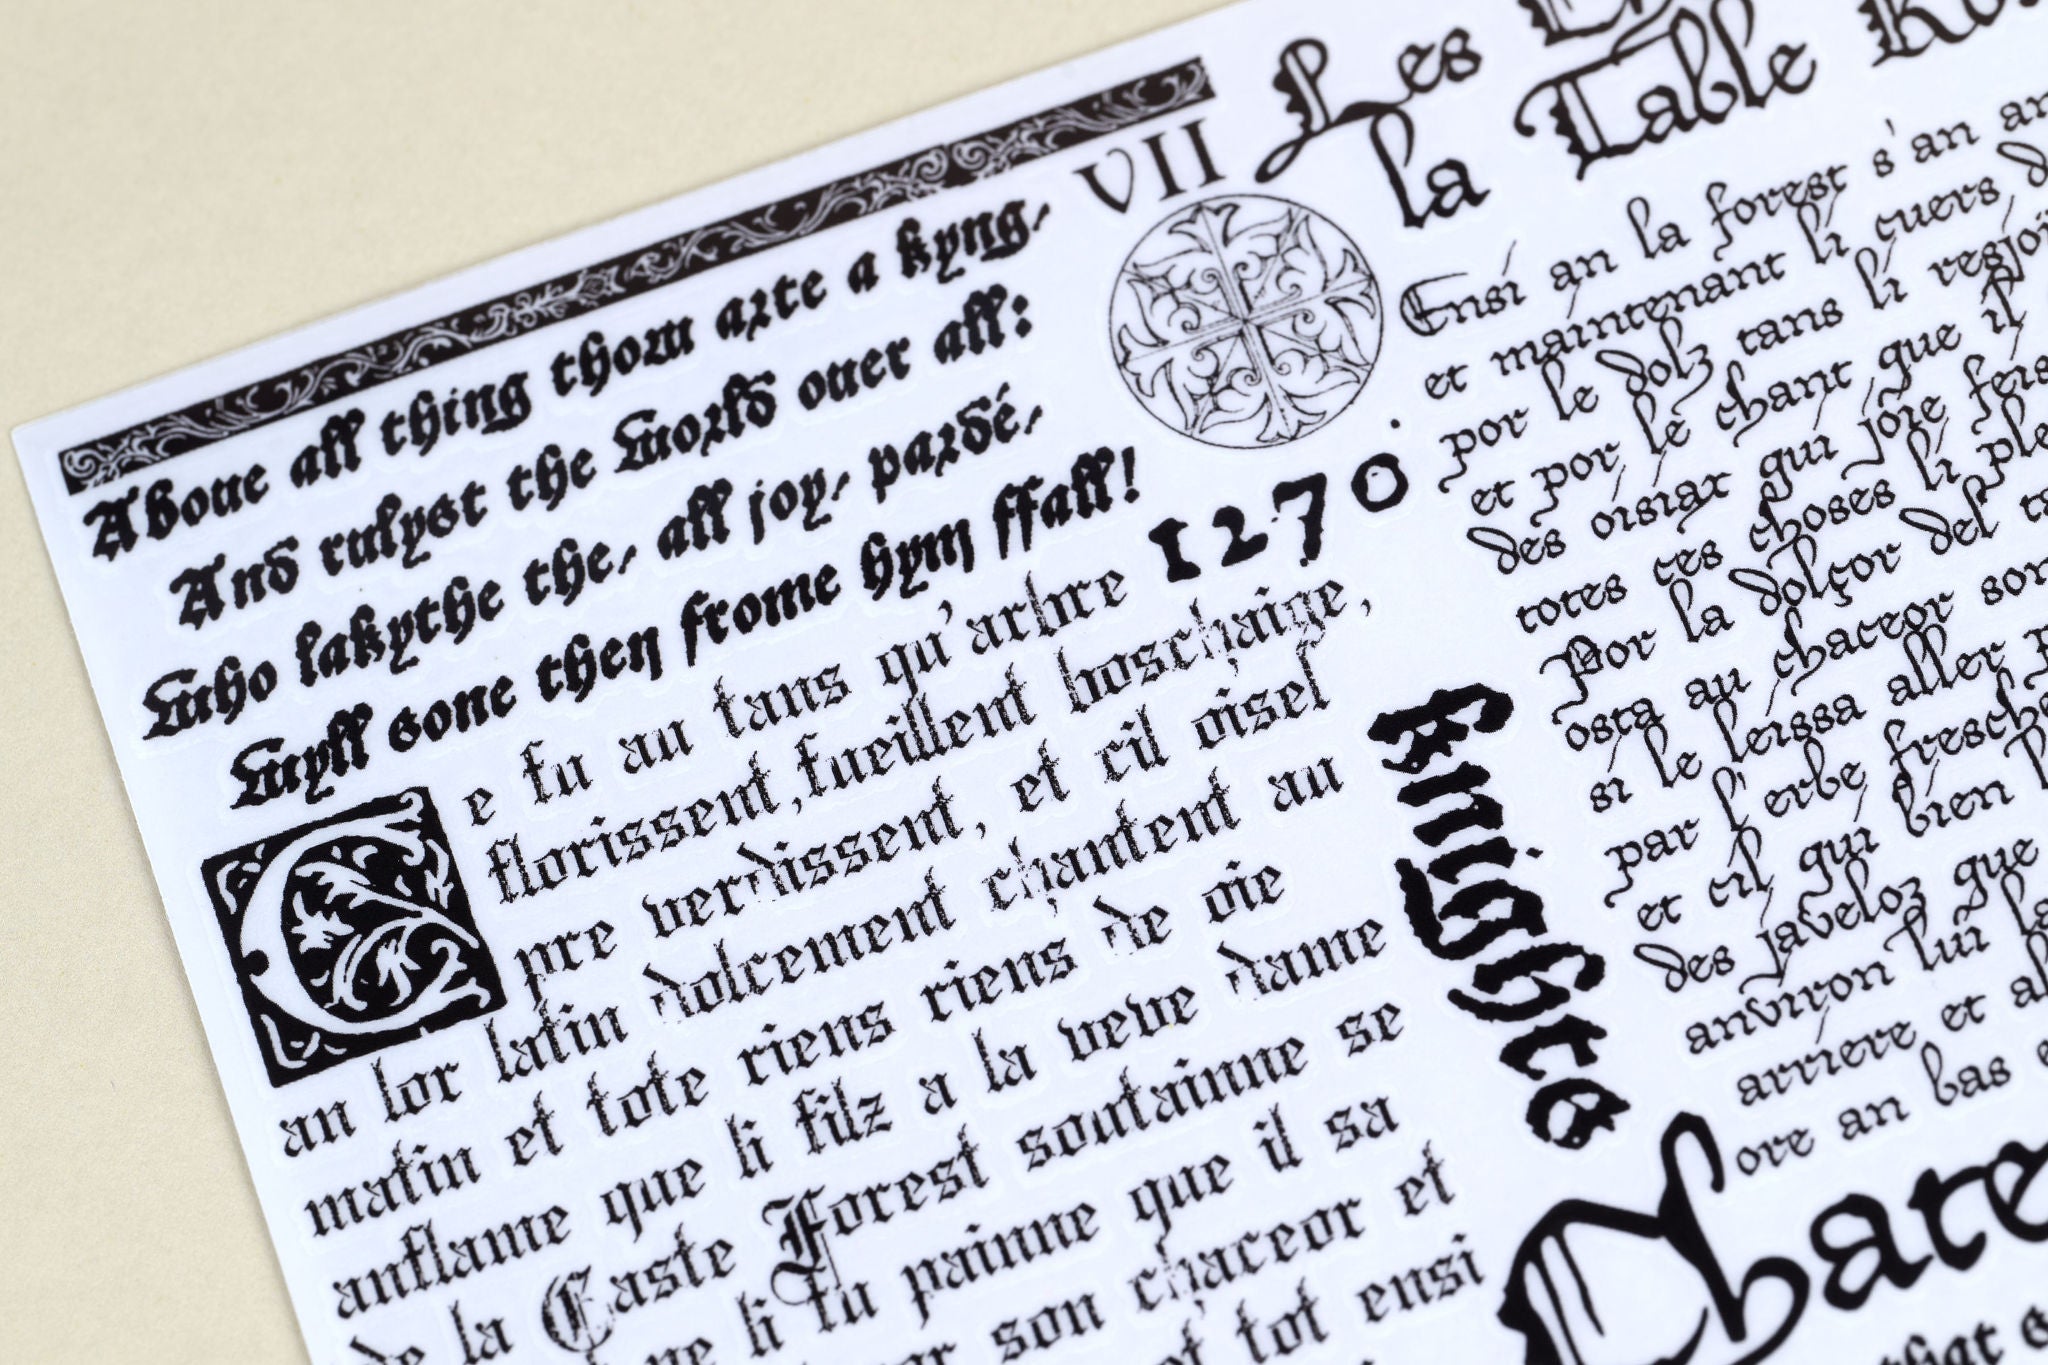 Aboue all thing thow arte a kyng,
And rulyst the world ouer all:
Who lakythe the, all joy, pardé,
Wyll sone then frome hym ffall!
VII
1270.
Ce fu au tans qu'arbre
florissent, fueillent boschaige,
pre verdissent, et cil oisel
an lor latin dolcement chantent au
matin et tote riens riens de oie
anflame que li filz a la veve dame
de la Gaste Forest soutainne se
li fu painne que il sa
son chaceor et
tot ensi
knights
Les
la Table
Ensi an la forest s'an
et maintenant li cuers
por le dolz tans li
et por le chant que il
des oisiax qui joie
totes ces choses li
Por la dolçor del
osta au chaceor son
si le leissa aller
par l'erbe
et cil qui bien
des javeloz que
anviron lui
arriere et
ore an bas
that